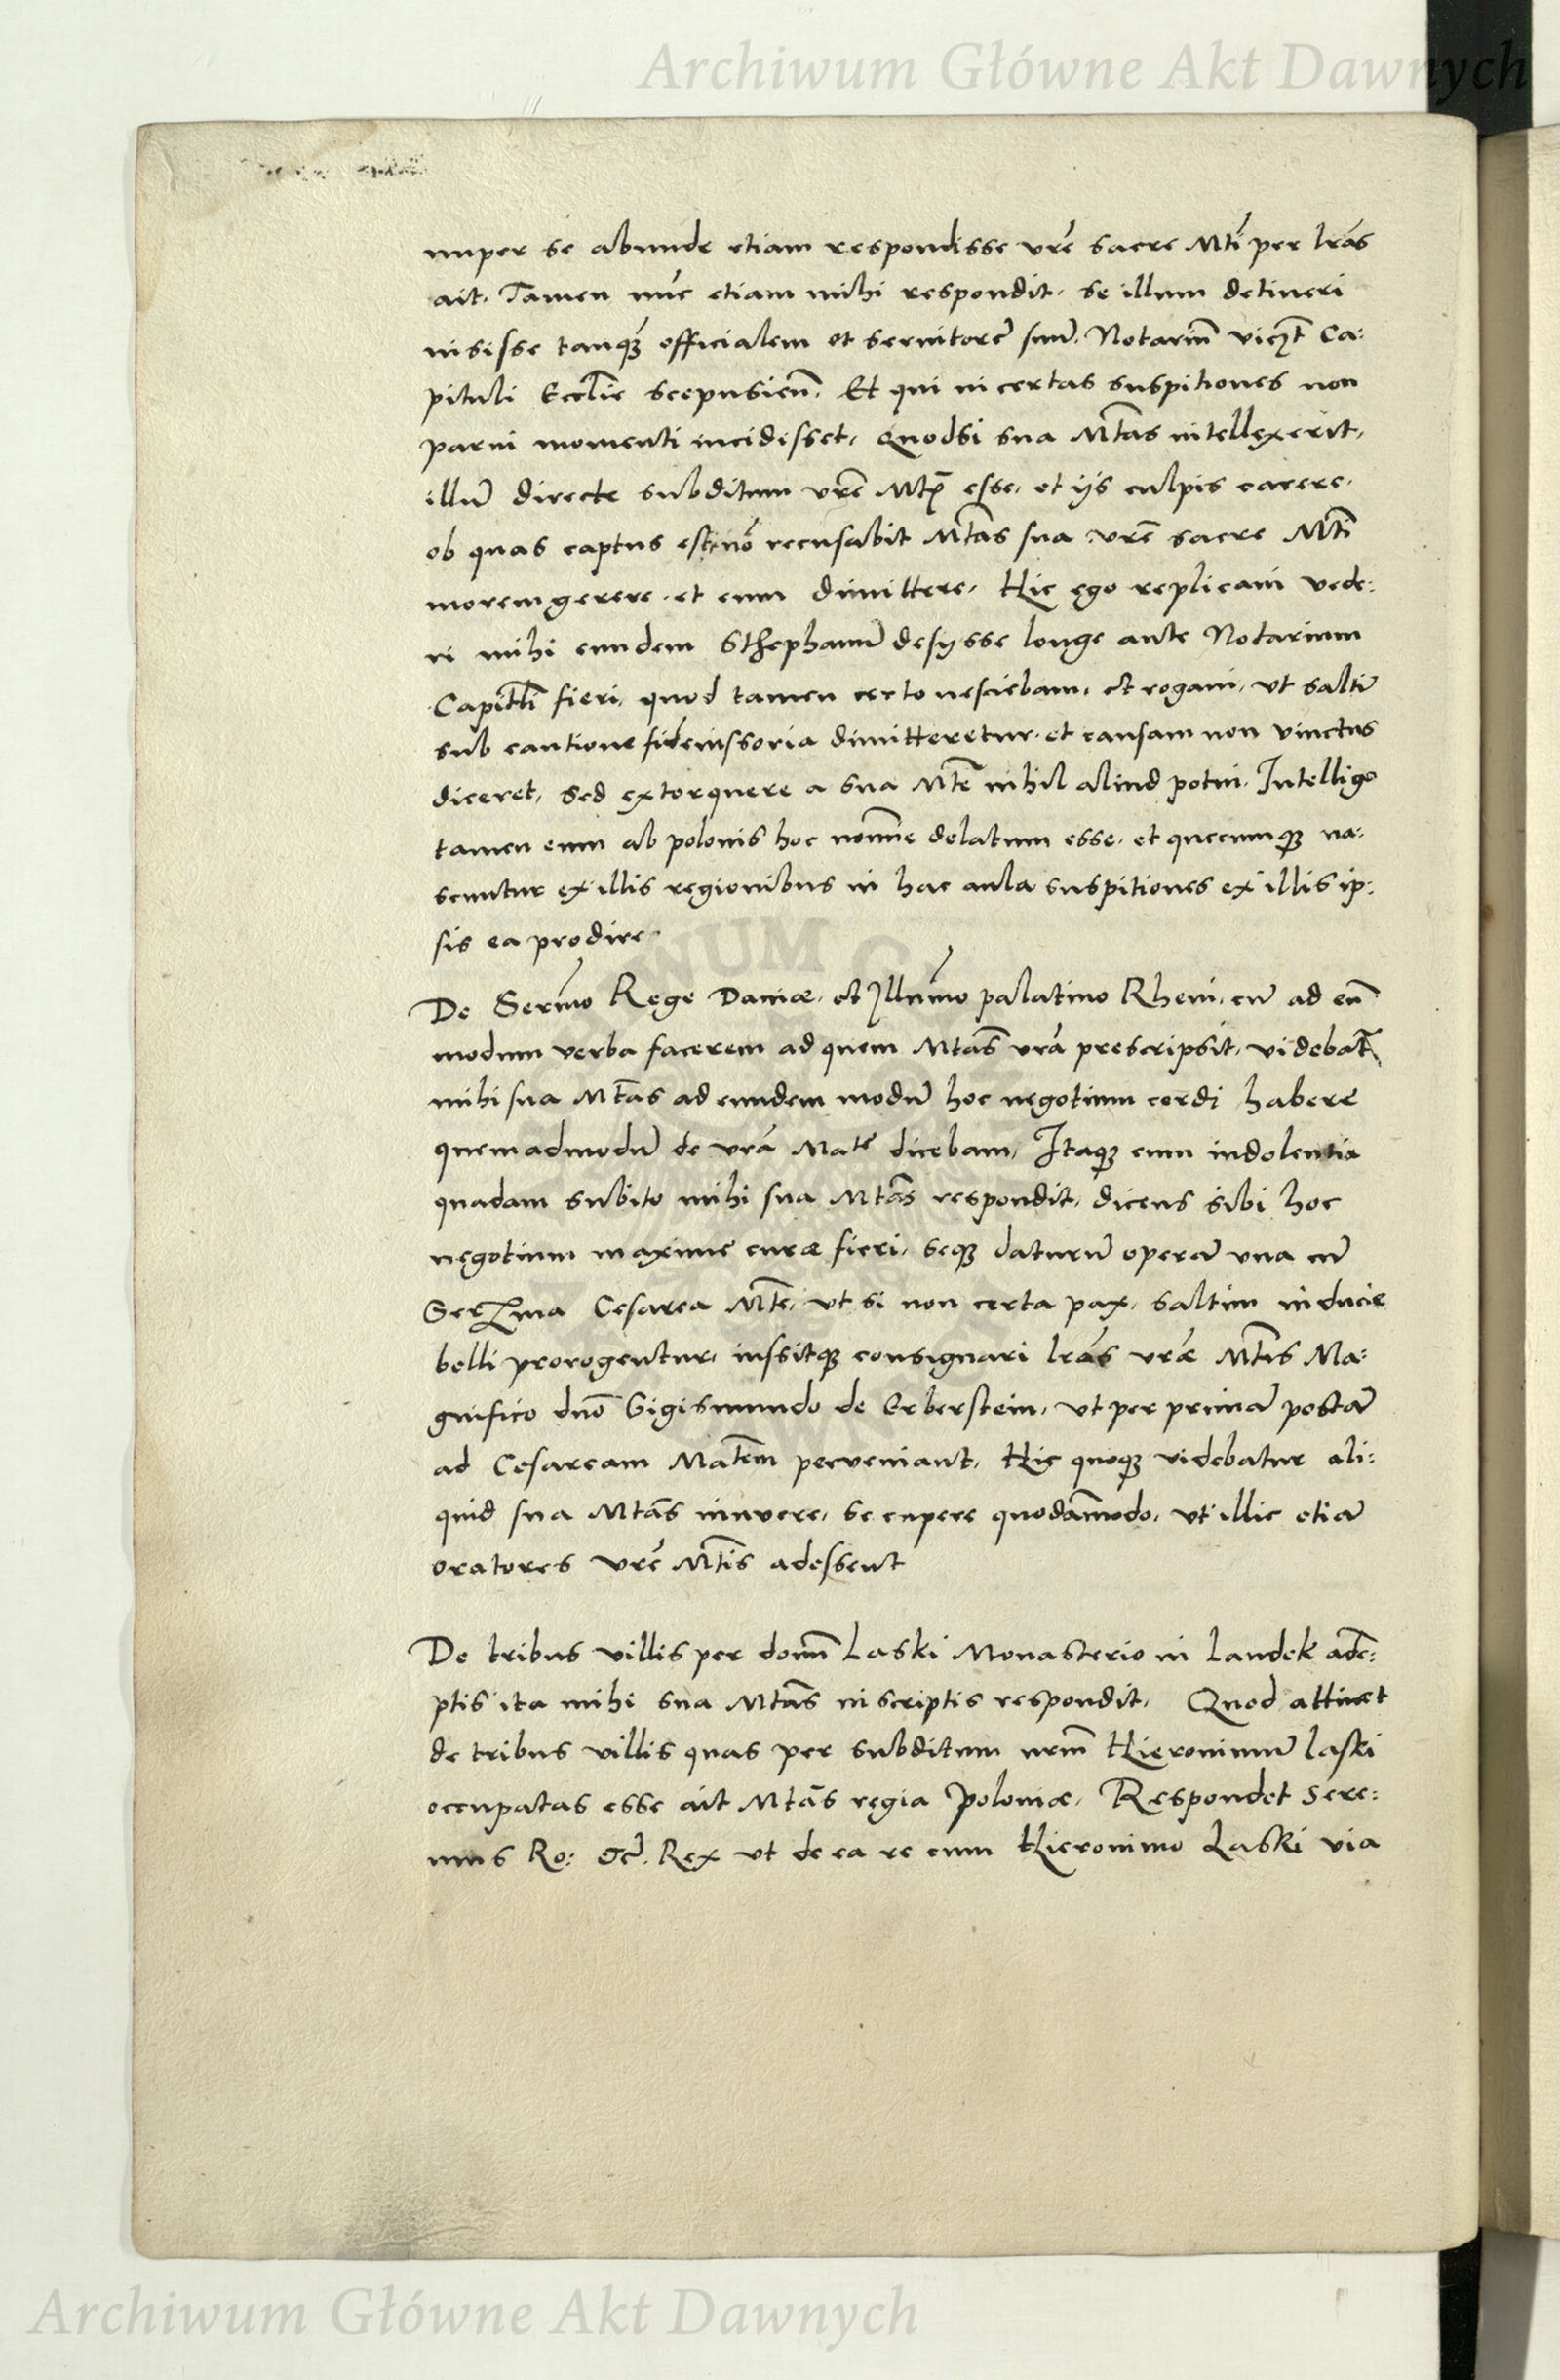 Archiwum Główne Akt Dawnych
nuper se abunde etiam respondisse vr̃e sacre Mti̅ per lr̃as
ait. Tamen nu̅c etiam mihi respondit. se illum detineri
iusisse tanq̃ȝ officialem et seruitore̅ suu̅. Notariu̅ viczt Ca:
pituli Eccl̅ie scepusien̅. Et qui in certas suspitiones non
parui momenti incidisset, Quodsi sua Mt̅as intellexerit,
illu̅ directe subditum vr̃e Mtis̅ esse, et ijs culpis carere,
ob quas captus est no̅ recusabit Mt̅as sua vr̃e sacre Mti̅
morem gerere. et eum dimittere, Hic ego replicaui vide:
ri mihi eundem Sthephanu̅ desijsse longe ante Notarium
Capitl̅i fieri, quod tamen certo nesciebam, et rogaui, vt salti̅
sub cautione fideiussoria dimitteretur. et causam non vinctus
diceret, Sed extorquere a sua Mte̅ nihil aliud potui. Intelligo
tamen eum ab polonis hoc no̅ine delatum esse, et quecumqȝ na:
scuntur ex illis regionibus in hac aula suspitiones ex illis ip:
sis ea prodire
De Seri̅mo Rege Daniæ, et Illu̅mo palatino Rheni, cu̅ ad eu̅
modum verba facerem ad quem Mt̅as vr̃a prescripsit, videbat̅
mihi sua Mt̅as ad eundem modu̅ hoc negotium cordi habere
quemadmodu̅ de vr̃a Mate̅ dicebam, Itaqȝ cum indolentia
quadam subito mihi sua Mt̅as respondit, dicens sibi hoc
negotium maxime curæ fieri, seqȝ daturu̅ opera̅ vna cu̅
Serma Cesarea Mte̅, vt si non certa pax, saltim inducie
belli prorogentur, iussitqȝ consignari lr̃as vr̃æ Mt̅is Ma:
gnifico dn̅o Gigismundo de Erberstein, vt per prima̅ posta̅
ad Cesaream Mate̅m perveniant, Hic quoqȝ videbatur ali:
quid sua Mt̅as innuere, se cupere quoda̅modo, vt illic etia̅
oratores vr̃e Mt̅is adessent
De tribus villis per domn̅ Laski Monasterio in Landek ade̅:
ptis ita mihi sua Mt̅as in scriptis respondit, Quod attinet
de tribus villis quas per subditum nrm̅ Hieronimu̅ laski
occupatas esse ait Mt̅as regia Poloniæ, Respondet Sere:
mus Ro: &c̃. Rex vt de ea re cum Hieronimo Laski via
Archiwum Główne Akt Dawnych